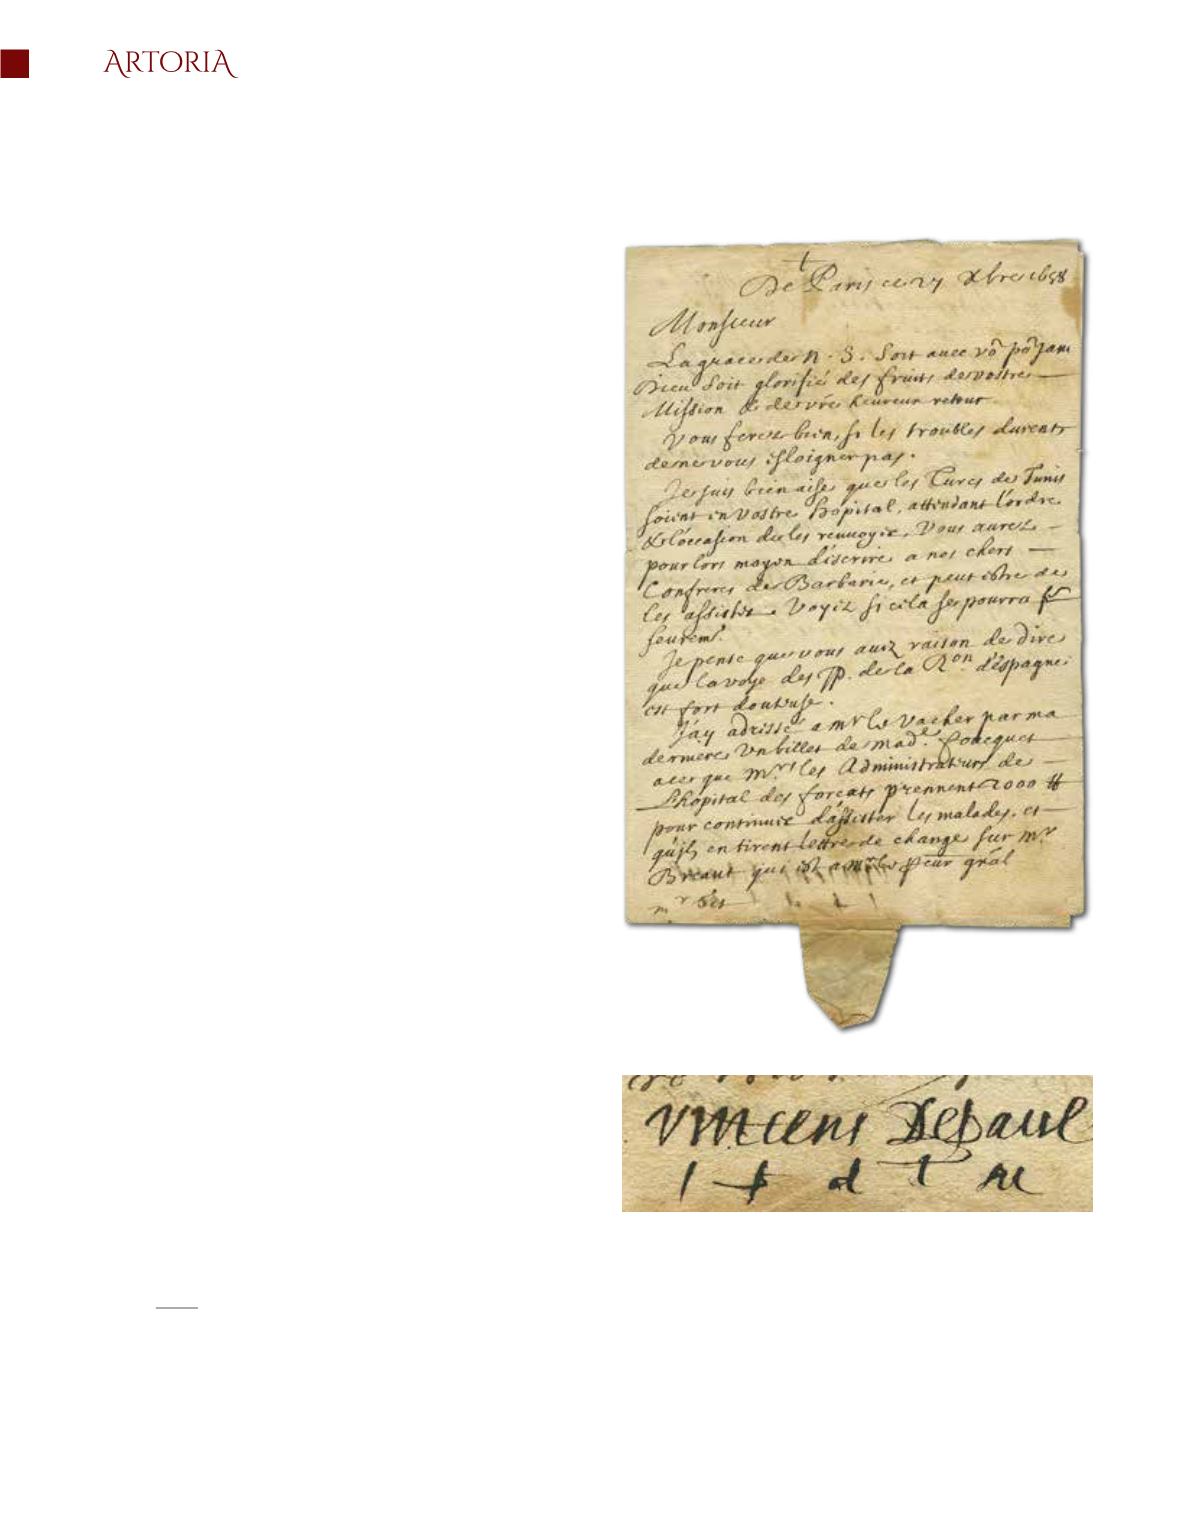 ARTORIA
De Paris ce 27 Xbre 1658
Monsieur
La grace de N. S. soit auec vo~ po~ Jam
Dieu soit glorifié des fruits de vostre
Mission & de vre heureux retour
Vous ferez bien, si les troubles durent
de ne vous esloigner pas.
Je suis bien aise que les Turcs de Tunis
soient en vostre hopital, attendant l'ordre
& l'occasion de les renuoyer. Vous aurez
pour lors moyen d'escrire a nos chers
Confreres de Barbarie, et peut estre de
les assister. Voyez si cela se pourra
seuremt.
Je pense que vous auez raison de dire
que la voye des PP. de la Ron d'espagne
est fort douteuse.
J'ay adressé a mr le Vacher par ma
derniere Vn billet de made. foucquet
a ce que mrs les Administrateurs de
L'hopital des forcats prennent 2000 ₶
pour continuer d'assister les malades, et
qu'ils en tirent lettre de change sur mr
Breant qui est a mr le Pcur gral
mr
Vincens Depaul
i s d l m